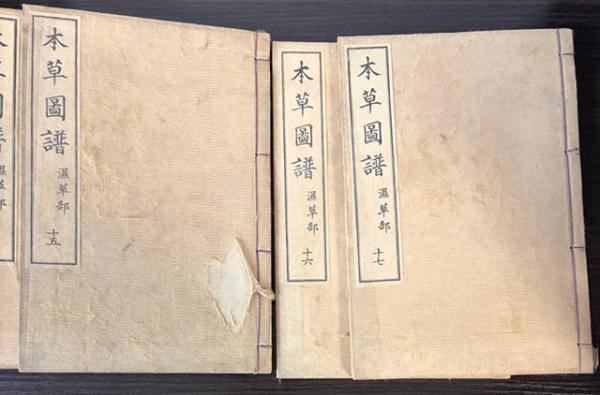 本草圖譜 濕草部 十七
本草圖譜 濕草部 十六
本草圖譜 濕草部 十五
本草圖譜 濕草部